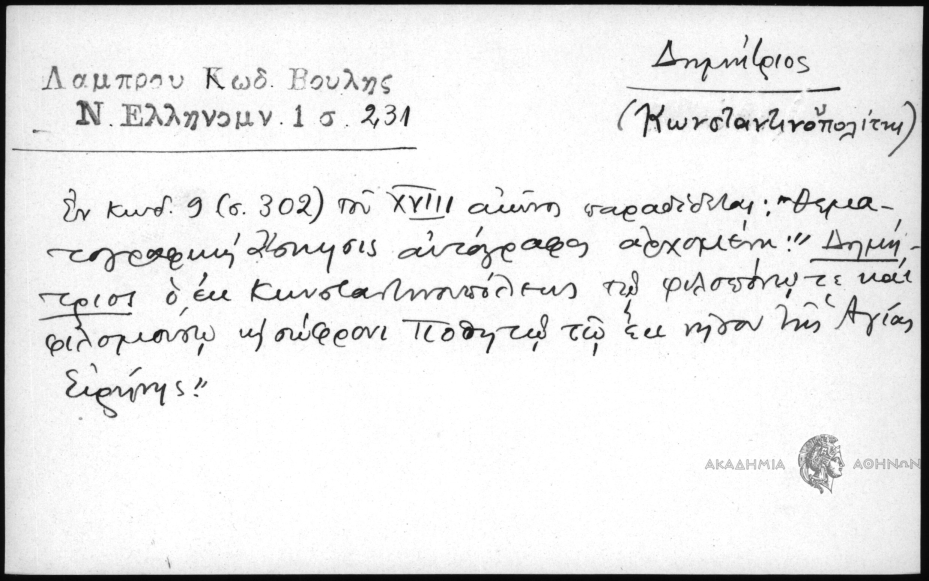 Λαμπρου Κωδ. Βουλης
Ν. Ελληνομν. 1 σ. 231
Δημήτριος
(Κωνσταντινοπολίτης)
Ἐν κωδ. 9 (σ. 302) τοῦ XVIII αἰῶνος παραδίδεται: "Θεμα-
τογραφικὴ ἄσκησις αὐτόγραφος ἀρχομένη:" Δημή-
τριος ὁ ἐκ Κωνσταντινουπόλεως τῷ φιλοπόνῳ τε καὶ
φιλομούσῳ κ σώφρονι Ποθητῷ τῷ ἐκ νήσου τῆς Ἁγίας
Εἰρήνης."
ΑΚΑΔΗΜΙΑ ΑΘΗΝΩΝ